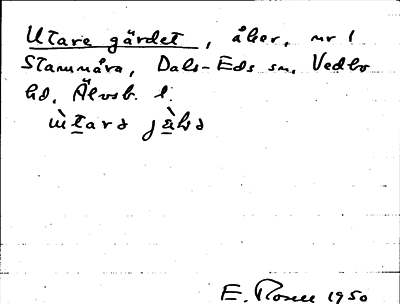 Utare gärdet, åker, nr 1
Stammåra, Dals-Eds sn, Vedbo
hd, Älvsb. l.
E. Rosell 1950